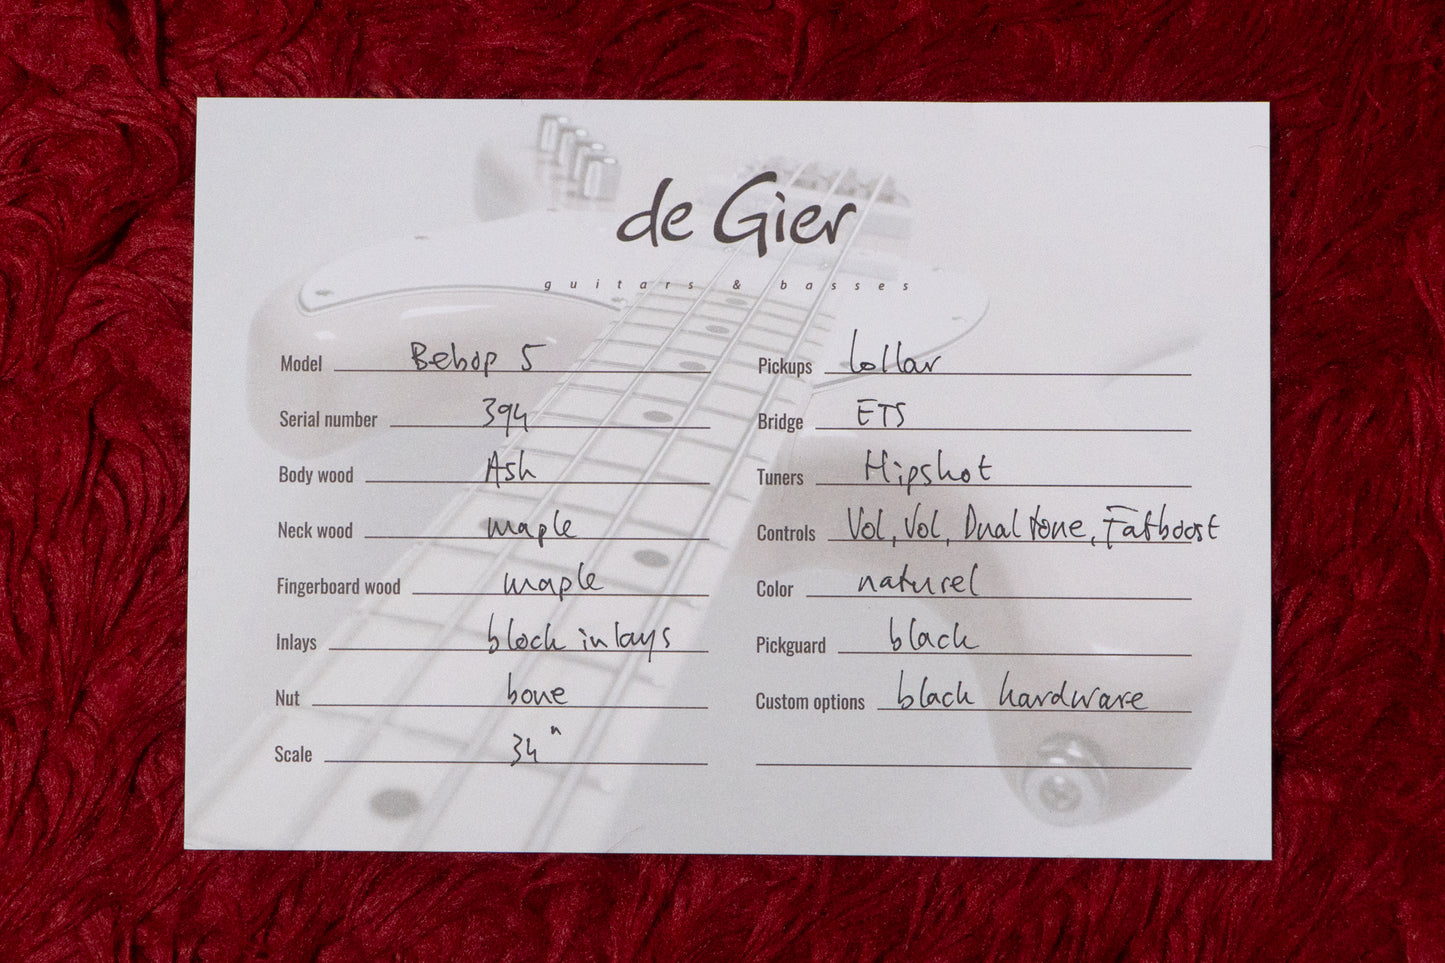 de Gier
guitars & basses
Model Bebop 5
Serial number 394
Body wood Ash
Neck wood maple
Fingerboard wood maple
Inlays block inlays
Nut bone
Scale 34"
Pickups lollar
Bridge ETS
Tuners Hipshot
Controls Vol, Vol, Dual tone, Fatboost
Color naturel
Pickguard black
Custom options black hardware